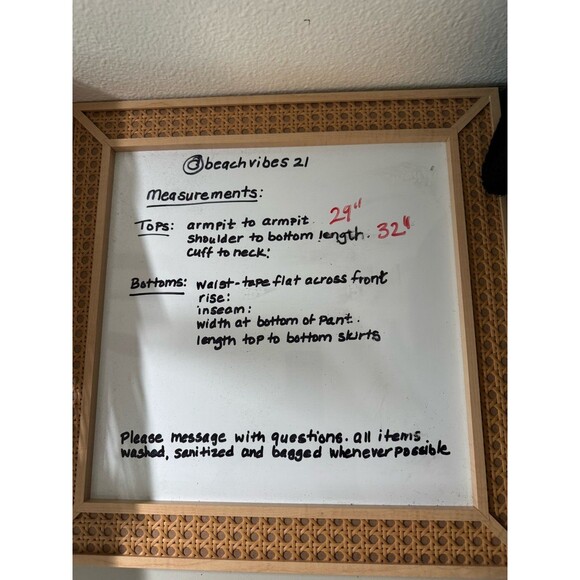 @beachvibes 21
Measurements:
Tops: armpit to armpit. 29"
shoulder to bottom length. 32"
cuff to neck:
Bottoms: waist-tape flat across front
rise:
inseam:
width at bottom of pant.
length top to bottom skirts
Please message with questions. all items
washed, sanitized and bagged whenever possible